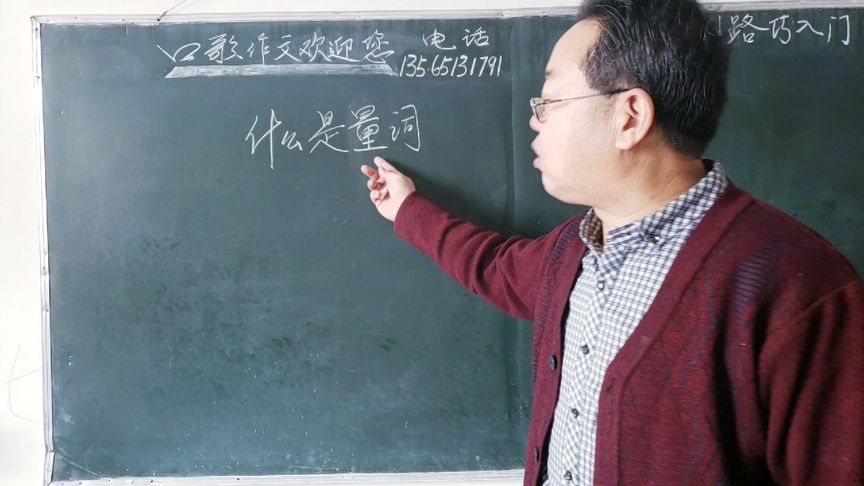 口歌作文欢迎您 电话
13565131791
路巧入门
什么是量词